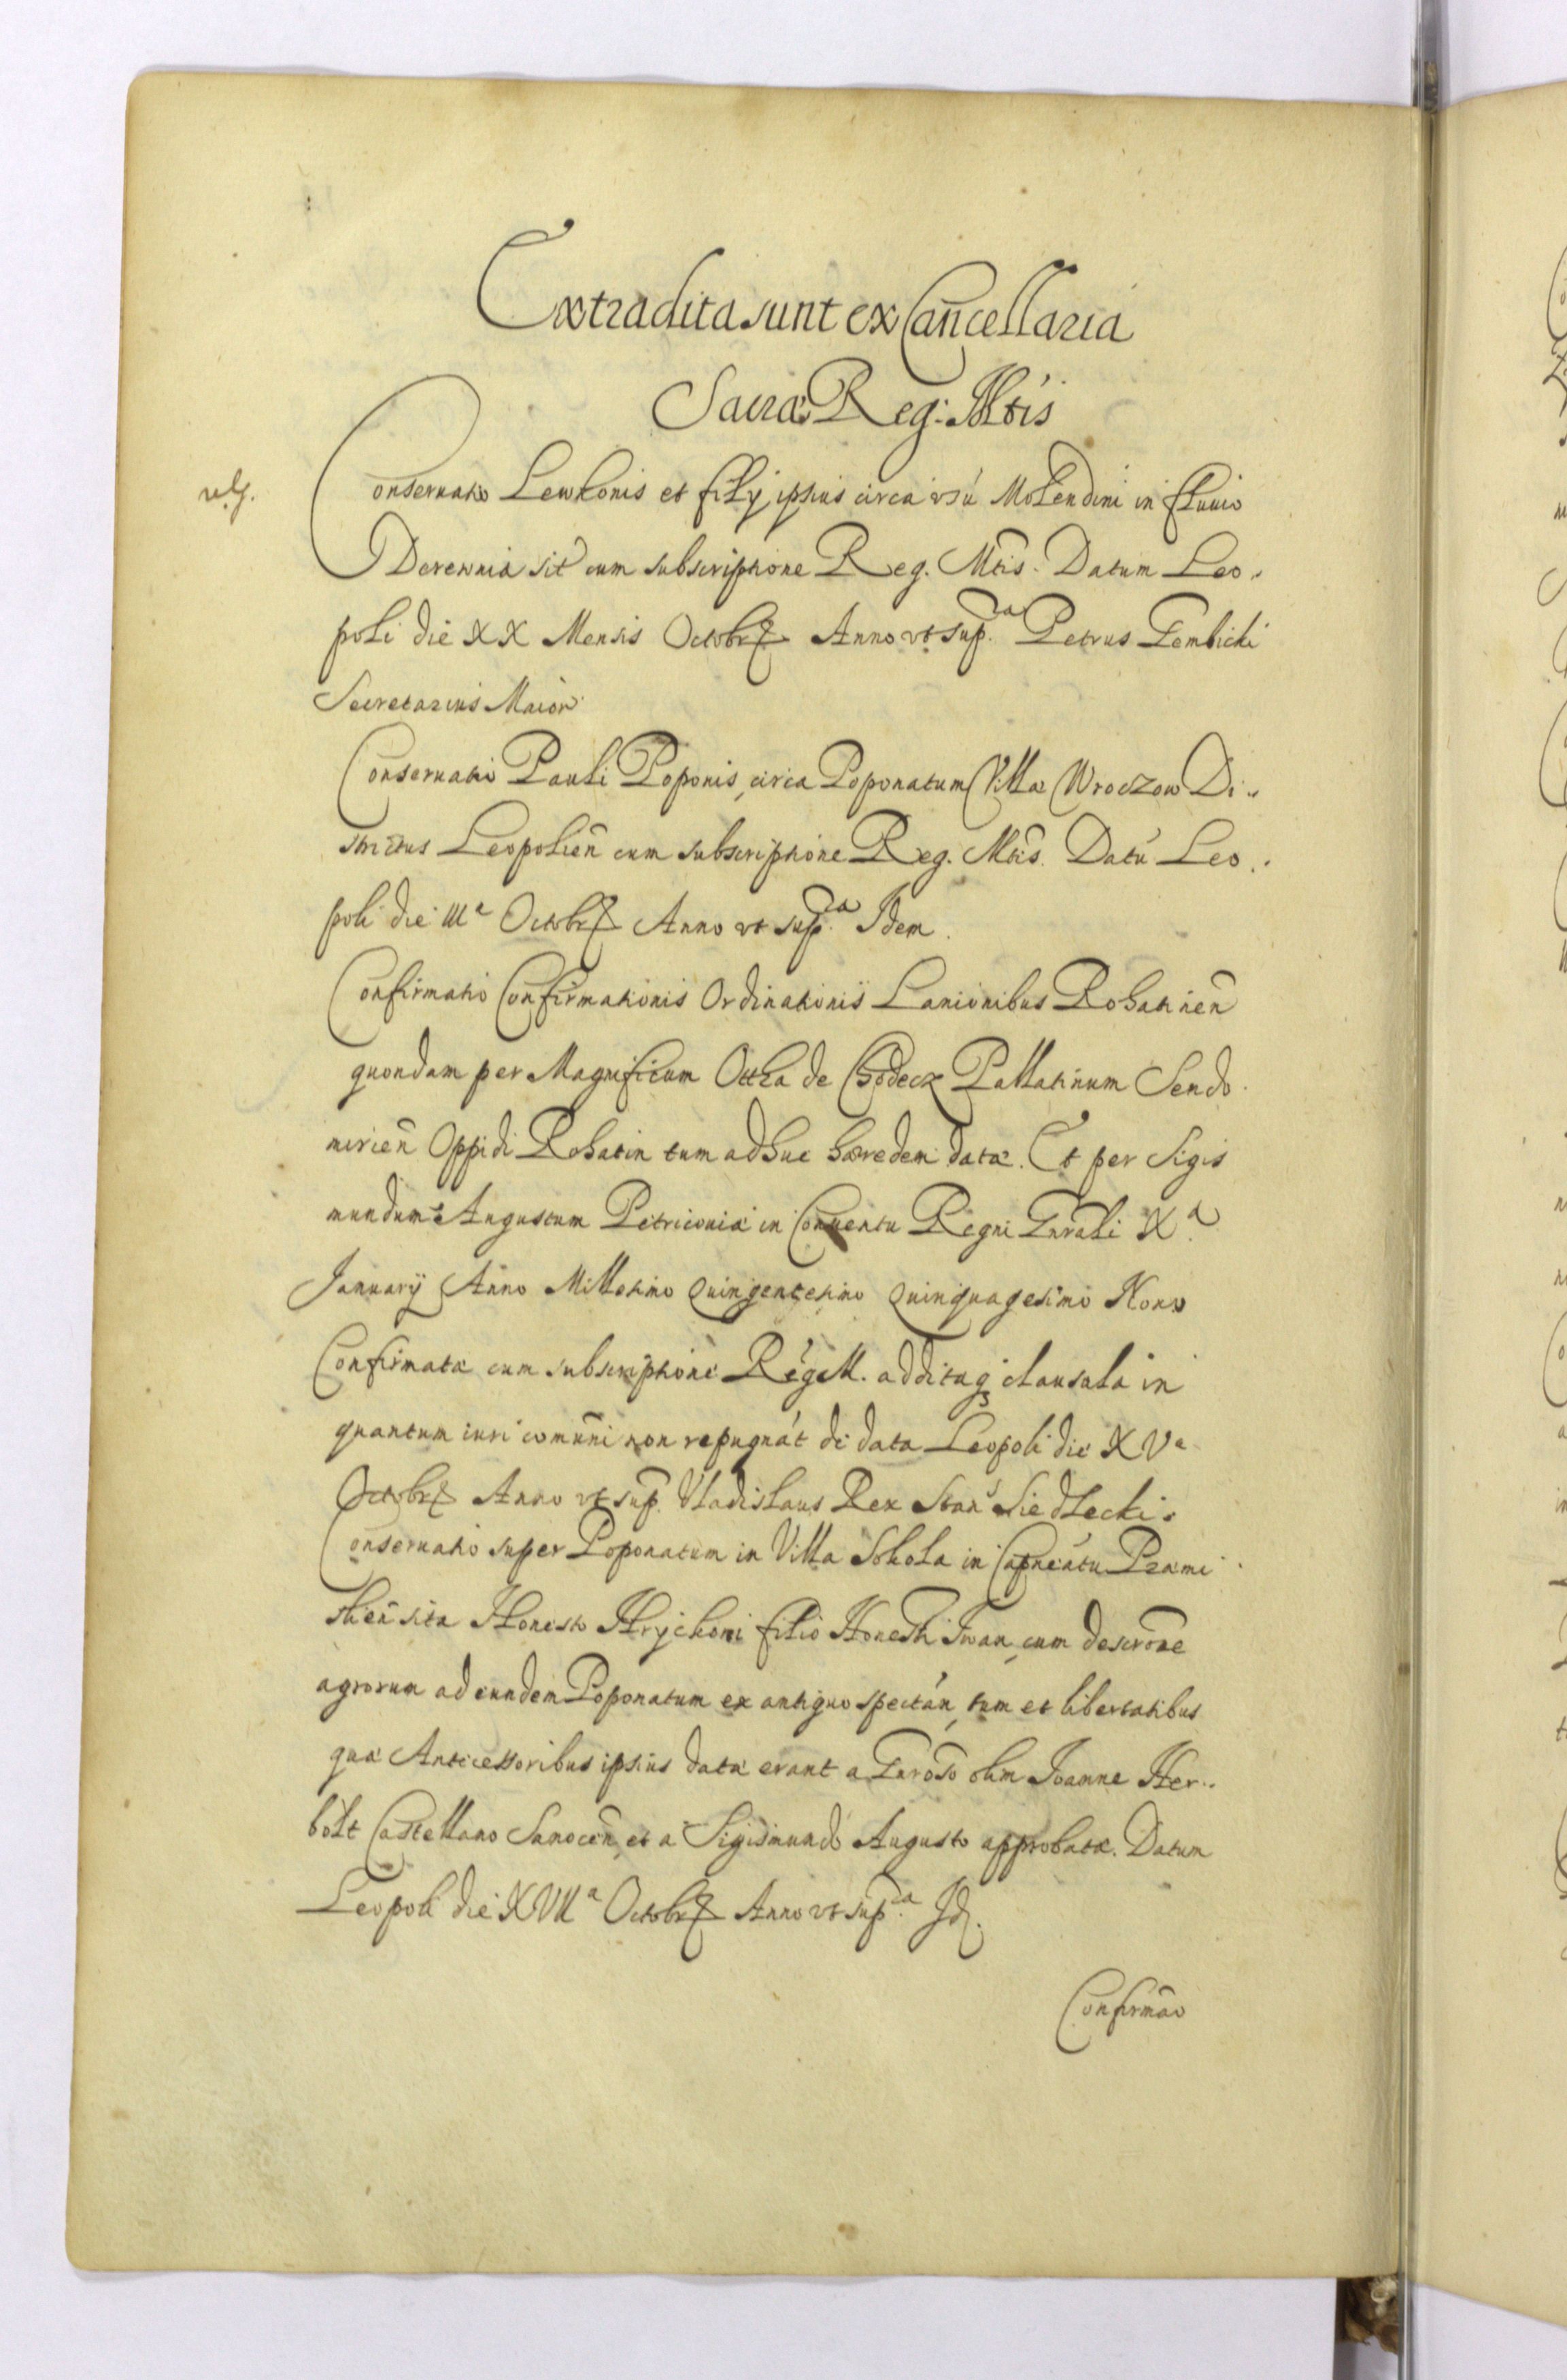 Extradita sunt ex Cancellaria
Sacræ Reg: Mtis
Conseruatio Lewkonis et filÿ ipsius circa vsú Molendini in fluuio
Derewnia sit cum subscriptione Reg. Mtis. Datum Leo-
poli die XX Mensis Octobrꝭ Anno vt sup.ª Petrus Gembicki
Secretarius Maior
Conseruatio Pauli Poponis, circa Poponatum Villæ Wroczow Di-
strictus Leopolien̄ cum subscriptione Reg. Mtis. Datú Leo-
poli die IIIª Octobrꝭ Anno vt sup.ª Idem.
Confirmatio Confirmationis Ordinationis Lanionibus Rohatinen̄
quondam per Magnificum Ottha de Chodecz Pallatinum Sendo
mirien̄ Oppidi Rohatin tum adhuc hæredem datæ. Et per Sigis
mundum Augustum Petricouiæ in Conuentu Regni Gnrali Xª
Januarÿ Anno Millesimo Quingentesimo Quinquagesimo Nono
Confirmatæ cum subscriptione Reg M. additaqꝫ clausula in
quantum iuri comuni non repugnát de data Leopoli die XVª
Octobrꝭ Anno vt sup. Vladislaus Rex Stans Siedlecki.
Conseruatio super Poponatum in Villa Sokola in Capneatu Præmi
slien̄ sita Honesto Hryckoni filio Honesti Iwan, cum descrōne
agrorum ad eundem Poponatum ex antiquo spectán, tum et libertatibus
quæ Antecessoribus ipsius datæ erant a Gnroso olim Joanne Her-
bolt Castellano Sanocen̄, et a Sigismundo Augusto approbatæ. Datum
Leopoli die XVIIª Octobrꝭ Anno vt sup.ª Jd.
Confirmāo